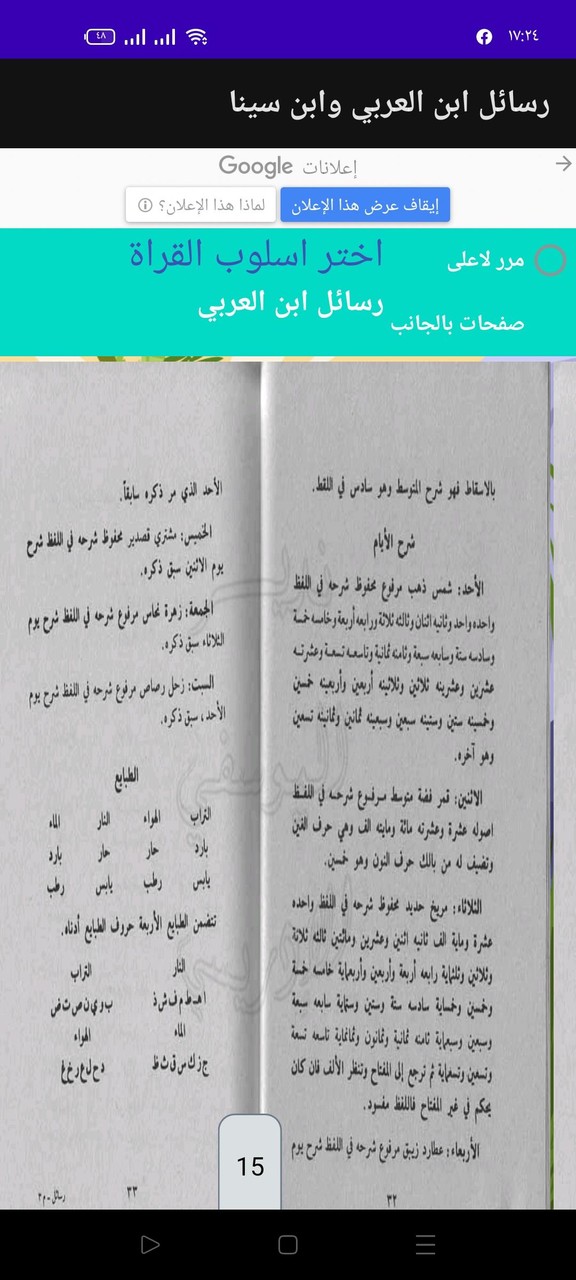 ١٧:٢٤
٤٨
رسائل ابن العربي وابن سينا
إعلانات Google
إيقاف عرض هذا الإعلان
لماذا هذا الإعلان؟
اختر اسلوب القراة
مرر لاعلى
رسائل ابن العربي
صفحات بالجانب
بالاسقاط فهو شرح المتوسط وهو سادس في اللقط.
شرح الأيام
الأحد: شمس ذهب مرفوع محفوظ شرحه في اللفظ
واحده واحد وثانيه اثنان وثالثه ثلاثة ورابعه أربعة وخامسه خمسة
وسادسه ستة وسابعه سبعة وثامنه ثمانية وتاسعه تسعة وعشرته
عشرين وعشرينه ثلاثين وثلاثينه أربعين وأربعينه خمسين
وخمسينه ستين وستينه سبعين وسبعينه ثمانين وثمانينه تسعين
وهو آخره.
الاثنين: قمر فضة متوسط مرفوع شرحه في اللفظ
اصوله عشرة وعشرته مائة ومايته الف وهي حرف الغين
وتضيف له من بالك حرف النون وهو خمسين.
الثلاثاء: مريخ حديد محفوظ شرحه في اللفظ واحده
عشرة وماية الف ثانيه اثنين وعشرين ومائتين ثالثه ثلاثة
وثلاثين وثلثماية رابعه أربعة وأربعين وأربعماية خامسه خمسة
وخمسين وخمساية سادسه ستة وستين وستماية سابعه سبعة
وسبعين وسبعماية ثامنه ثمانية وثمانون وثمانماية تاسعه تسعة
وتسعين وتسعماية ثم ترجع إلى المفتاح وتنظر الألف فان كان
يحكم في غير المفتاح فاللفظ مفسود.
الأربعاء: عطارد زيبق مرفوع شرحه في اللفظ شرح يوم
٣٢
الأحد الذي مر ذكره سابقاً.
الخميس: مشتري قصدير محفوظ شرحه في اللفظ شرح
يوم الاثنين سبق ذكره.
الجمعة: زهرة نحاس مرفوع شرحه في اللفظ شرح يوم
الثلاثاء سبق ذكره.
السبت: زحل رصاص مرفوع شرحه في اللفظ شرح يوم
الأحد، سبق ذكره.
الطبايع
التراب الهواء النار الماء
بارد حار حار بارد
يابس رطب يابس رطب
تتضمن الطبايع الأربعة حروف الطبايع أدناه.
النار التراب
اهـ ط م ف ش ذ ب و ي ن ص ت ض
الماء الهواء
ج ز ك س ق ث ظ د ح ل ع ر خ غ
٣٣
رسائل - م ٣
15